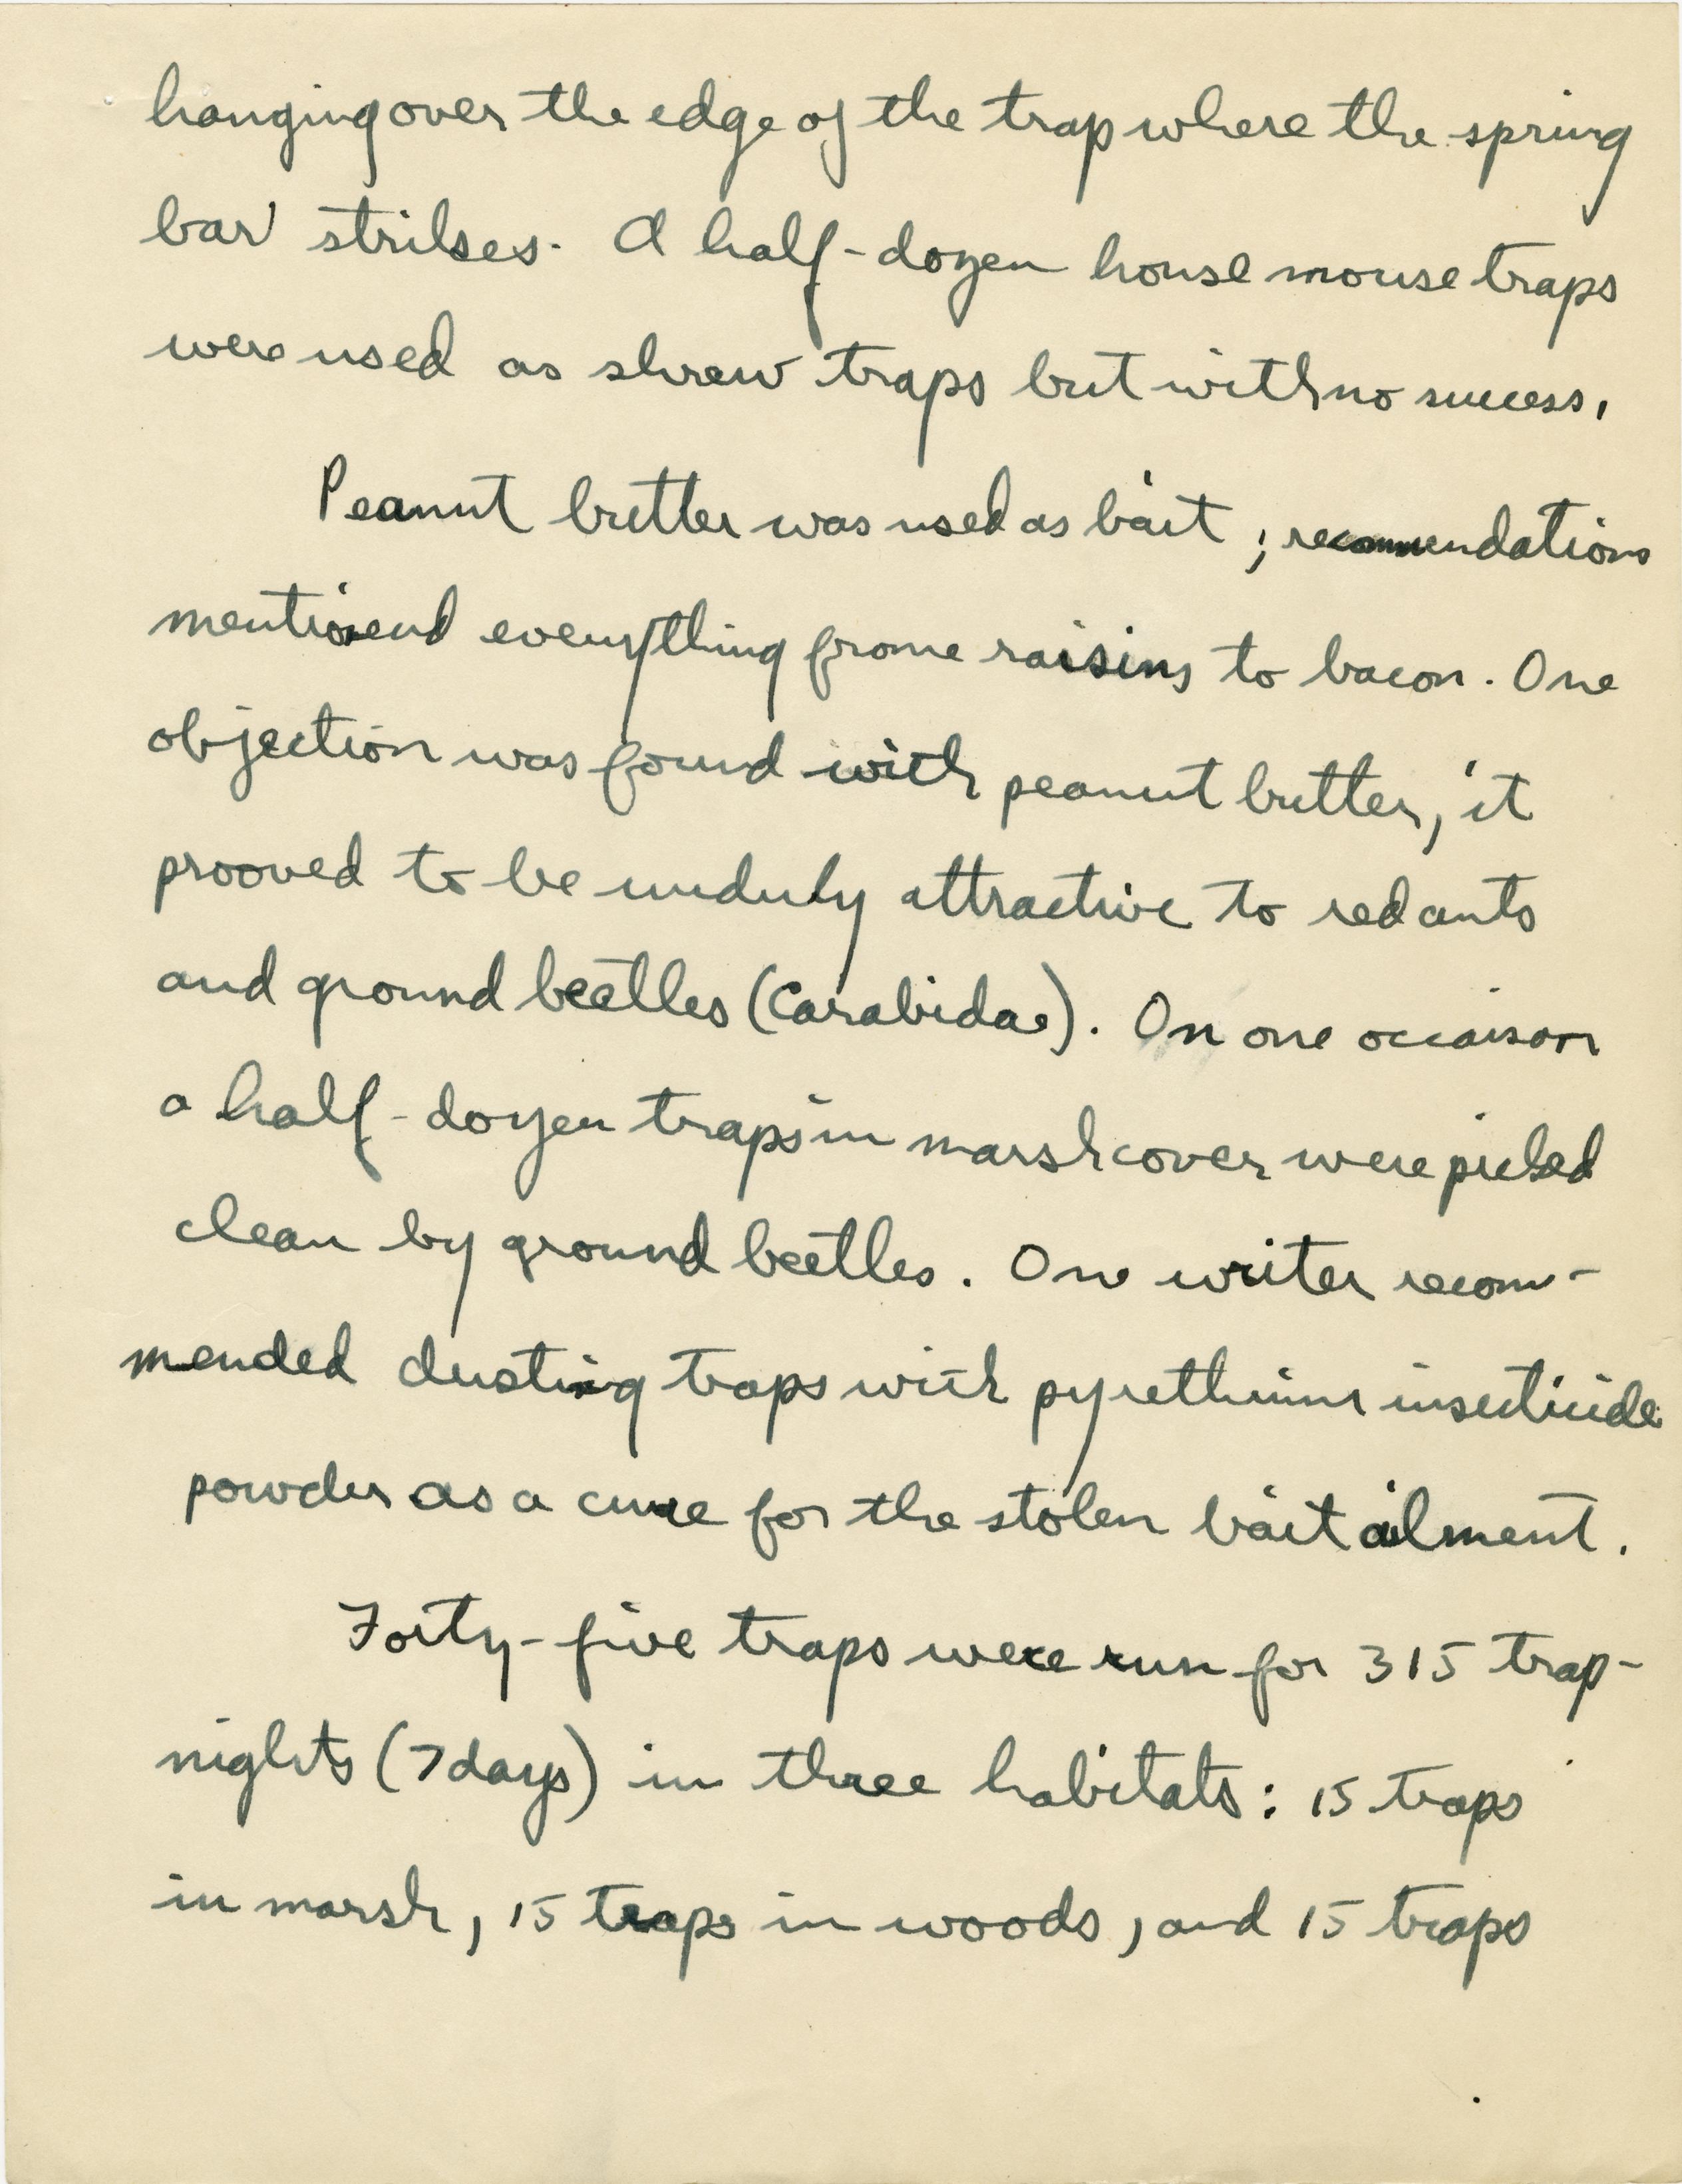 hanging over the edge of the trap where the spring
bar strikes. A half-dozen house mouse traps
were used as shrew traps but with no success.
Peanut butter was used as bait ; recommendations
mentioend everything frome raisins to bacon. One
objection was found with peanut butter, it
prooved to be unduly attractive to red ants
and ground beetles (Carabidae). On one occaison
a half-dozen traps in marsh cover were picked
clean by ground beetles. One writer recom-
mended dusting traps with pyrethrum insecticide
powder as a cure for the stolen bait ailment.
Forty-five traps were run for 315 trap-
nights (7 days) in three habitats: 15 traps
in marsh, 15 traps in woods, and 15 traps